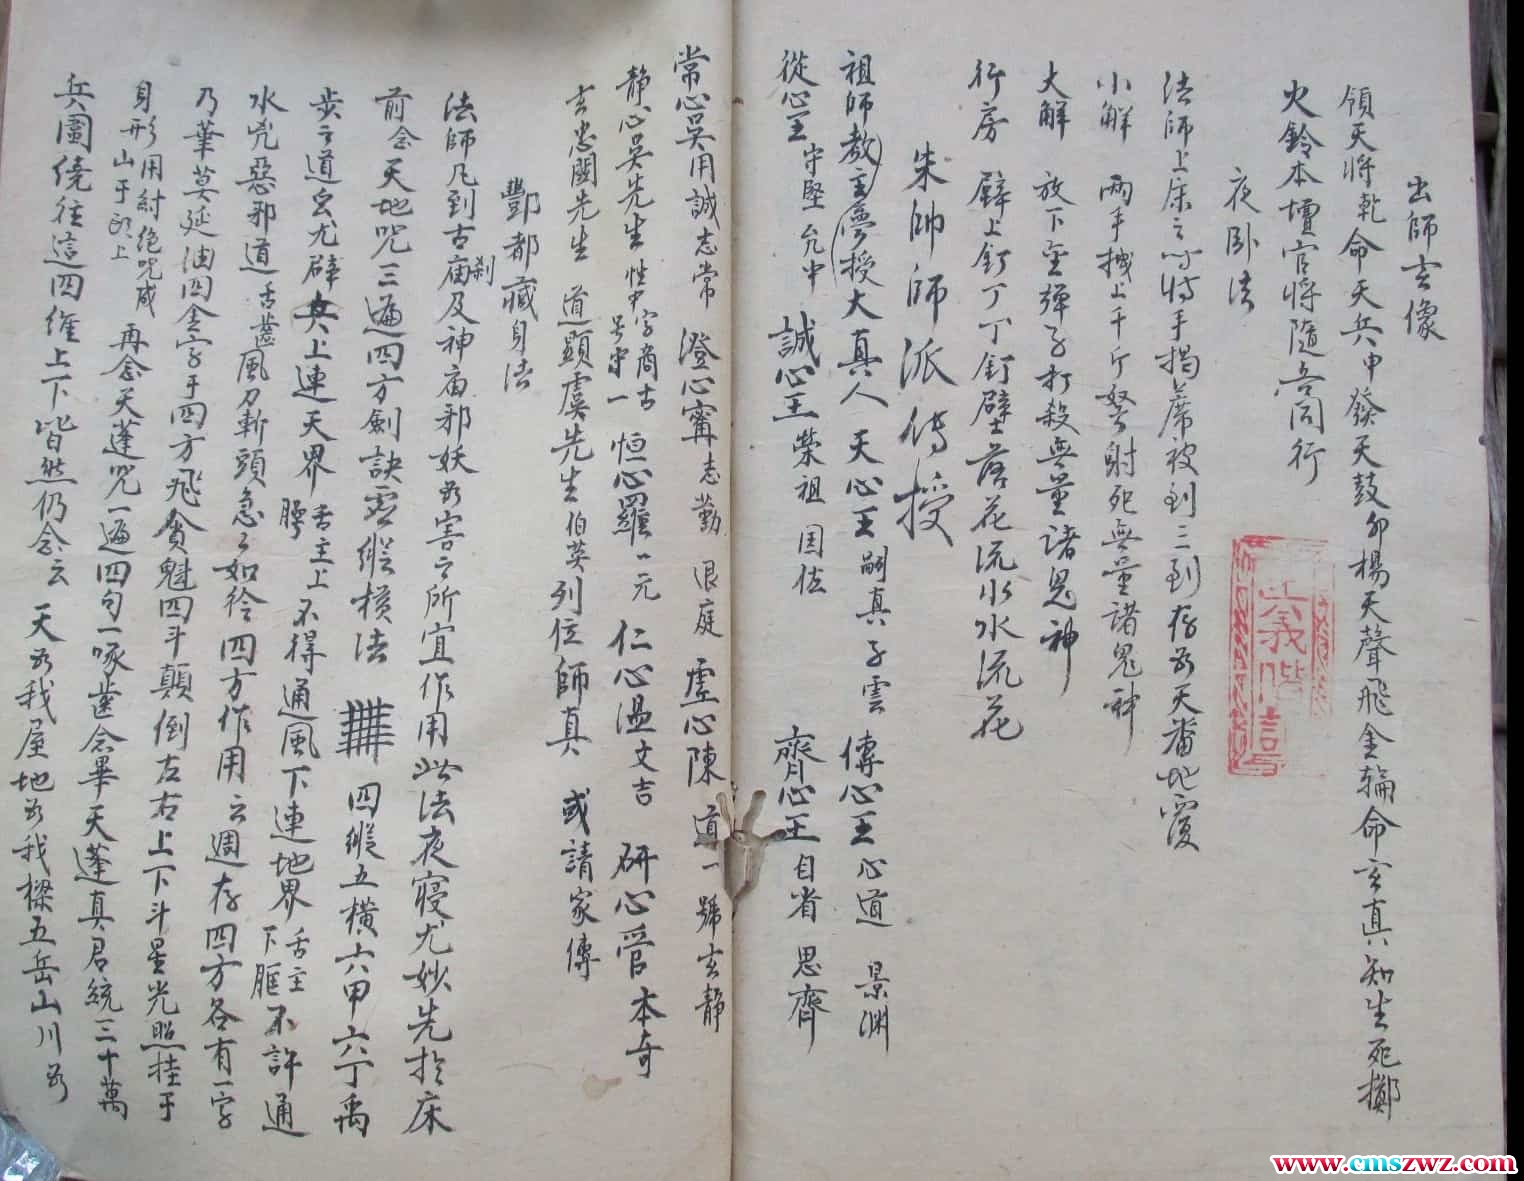 出師玄像
領天將乾命天兵申發天鼓卯楊天聲飛金輪命玄真知生死擲
火鈴本壇官將隨吾同行
夜卧法
法師上床之時將手揭蓆被到三到存為天番地覆
小解 兩手挽上千斤弩射死無量諸鬼神
大解 放下金彈子打殺無量諸鬼神
行房 壁上釘丁丁釘壁落花流水水流花
朱帥師派傳授
祖師教主夢授大真人 天心王嗣真子雲 傳心王心道 景淵
從心王守堅允中 誠心王榮祖國佐 齊心王自省思齊
常心吳用誠志常 澄心甯志勤退庭 虛心陳道一號玄靜
靜心吳先生性中字商古號守一 恒心羅一元 仁心温文吉 研心管本奇
玄忠闇先生 道顯虞先生伯英列位師真 或請家傳
酆都藏身法
法師凡到古廟刹及神庙邪妖為害之所宜作用此法夜寢尤妙先於床
前念天地咒三遍四方劍訣虛縱橫法 四縱五橫六甲六丁禹
步之道蚩尤辟兵上連天界舌主上腭不得通風下連地界舌主下腭不許通
水咒惡邪道舌蓋風刀斬頭急々如令四方作用之週存四方各有一字
乃華莫延油四金字于四方飛貪魁四斗顛倒左右上下斗星光照挂于
身形用紂絕咒咸山于卧上 再念天蓬咒一遍四句一啄齒念畢天蓬真君統三十萬
兵圍繞住這四維上下皆然仍念云 天為我屋地為我樑五岳山川為
www.cmszwz.com